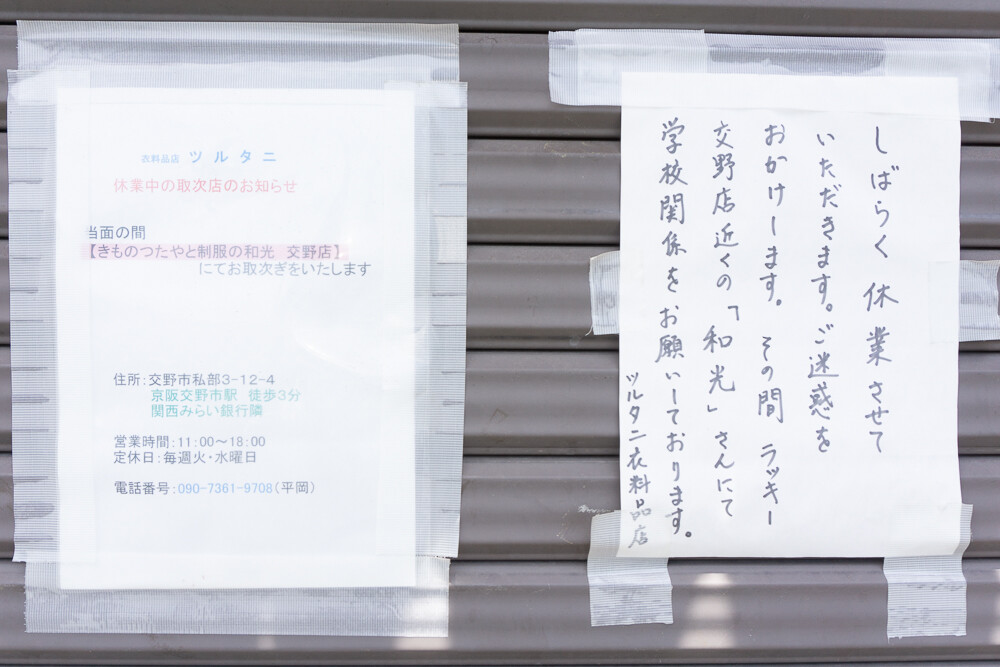 衣料品店 ツルタニ
休業中の取次店のお知らせ
当面の間
【きものつたやと制服の和光 交野店】
にてお取次ぎをいたします
住所：交野市私部3-12-4
京阪交野市駅 徒歩3分
関西みらい銀行隣
営業時間：11:00～18:00
定休日：毎週火・水曜日
電話番号：090-7361-9708（平岡）
しばらく休業させて
いただきます。ご迷惑を
おかけします。その間 ラッキー
交野店近くの「和光」さんにて
学校関係をお願いしております。
ツルタニ衣料品店